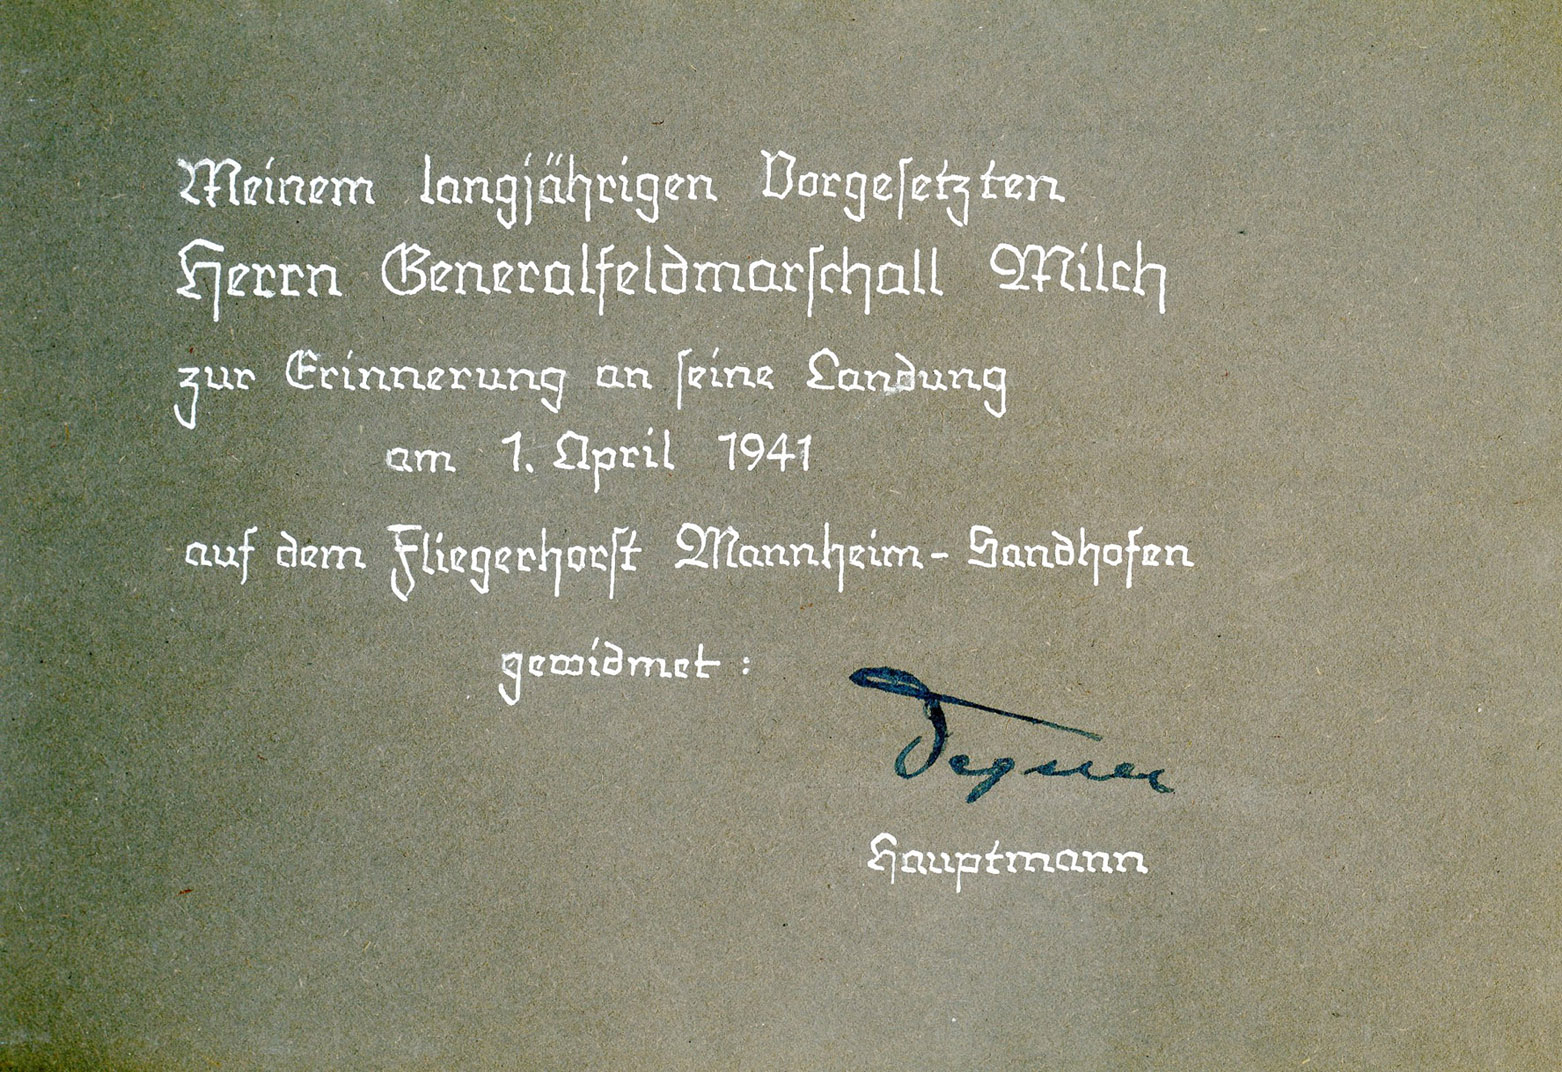 Meinem langjährigen Vorgesetzten
Herrn Generalfeldmarschall Milch
zur Erinnerung an seine Landung
am 1. April 1941
auf dem Fliegerhorst Mannheim-Sandhofen
gewidmet:
Degner
Hauptmann